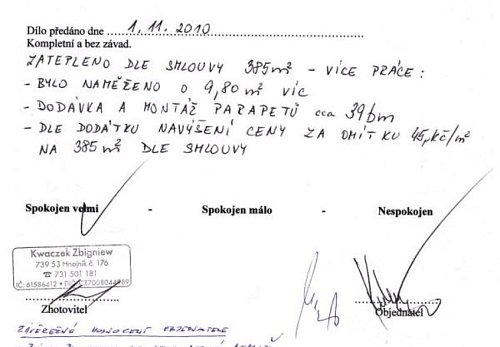 Dílo předáno dne 1. 11. 2010
Kompletní a bez závad.
ZATEPLENO DLE SMLOUVY 385m² - VÍCE PRÁCE:
- BYLO NAMĚŘENO O 9,80 m² VÍC
- DODÁVKA A MONTÁŽ PARAPETŮ cca 39bm
- DLE DODÁTKU NAVÝŠENÍ CENY ZA OMÍTKU 45,-Kč/m²
NA 385m² DLE SMLOUVY
Spokojen velmi - Spokojen málo - Nespokojen
Kwaczek Zbigniew
739 53 Hnojník č. 176
☎ 731 501 181
IČ: 61586412 • DIČ:
Zhotovitel Objednatel